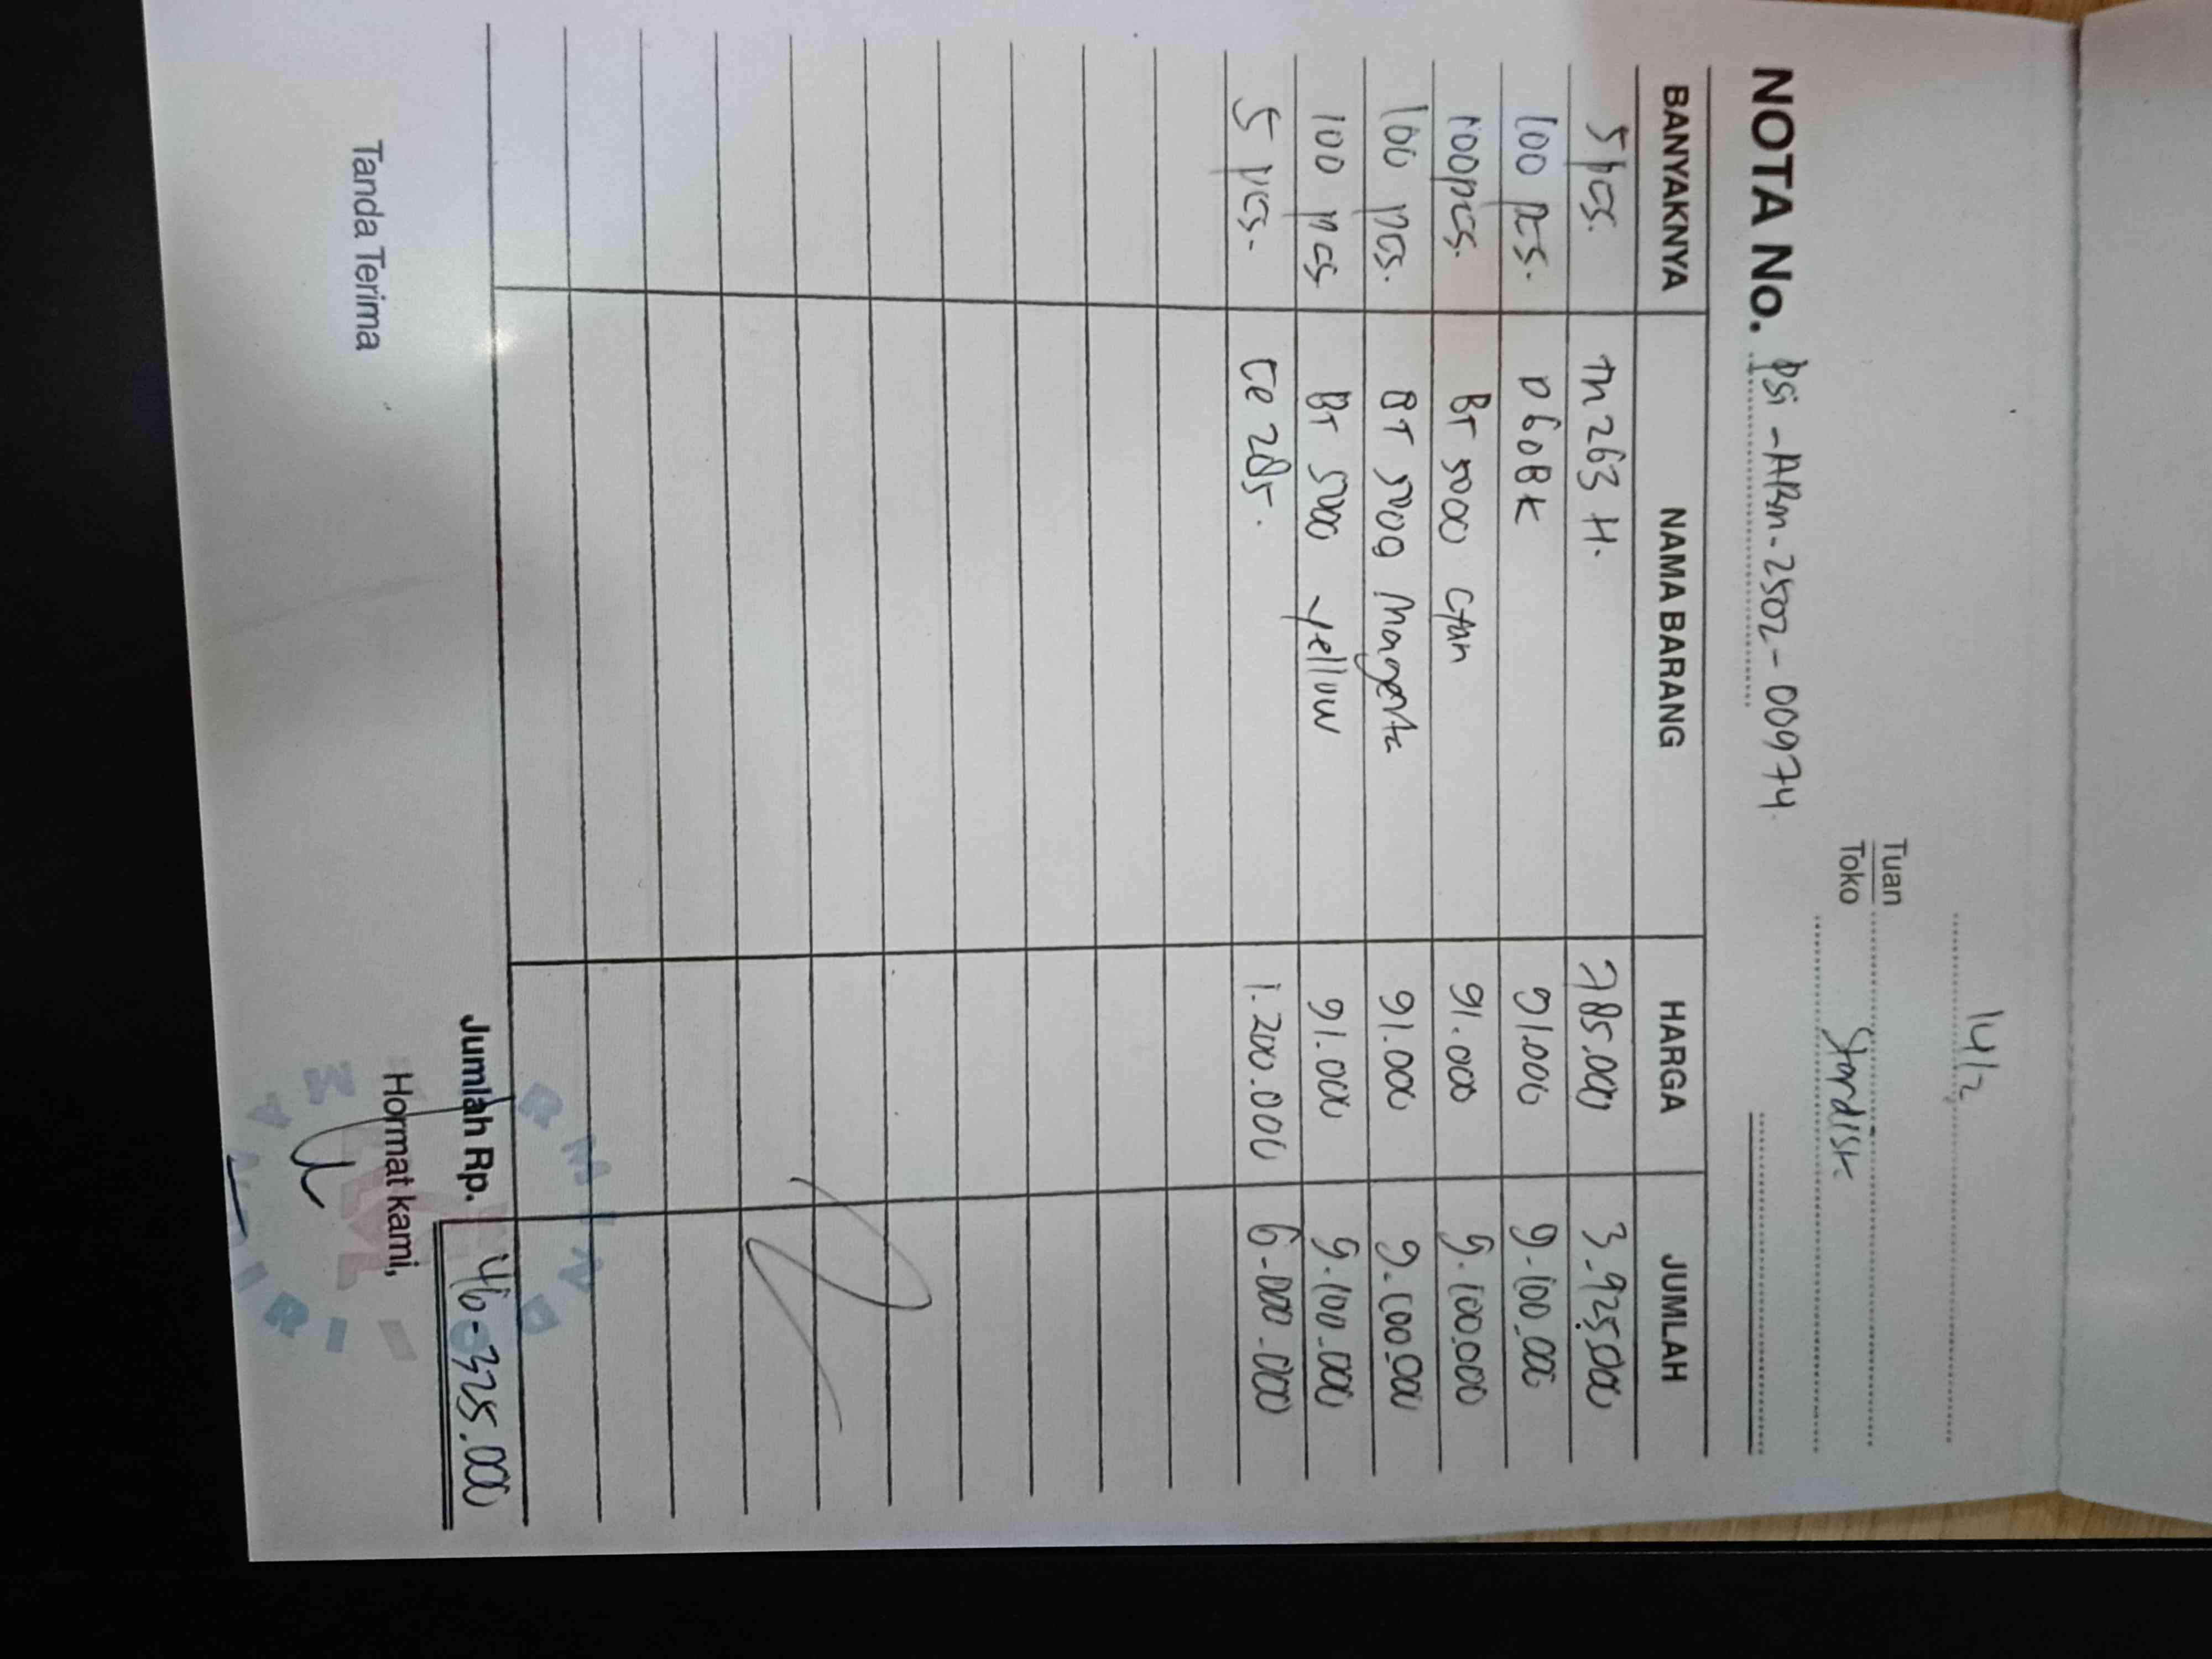 14/2
Tuan
Toko Stardisk
NOTA No. psi-ABM-2502-00974
BANYAKNYA NAMA BARANG HARGA JUMLAH
5 pcs. TN 263 H. 785.000 3.925.000
100 pcs. D60BK 91.000 9.100.000
100pcs. BT 5000 Cyan 91.000 9.100.000
100 pcs. BT 5000 Magenta 91.000 9.100.000
100 pcs BT 5000 Yellow 91.000 9.100.000
5 pcs. CE 285. 1.200.000 6.000.000
Jumlah Rp. 46.325.000
Tanda Terima Hormat kami,